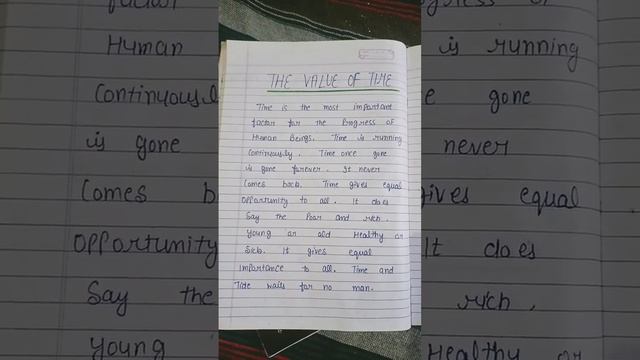 THE VALUE OF TIME
Time is the most important
factor for the Progress of
Human Beings. Time is running
Continuously. Time once gone
is gone forever. It never
Comes back. Time gives equal
Opportunity to all. It does
Say the Poor and rich.
Young or old Healthy or
Sick. It gives equal
importance to all. Time and
Tide waits for no man.